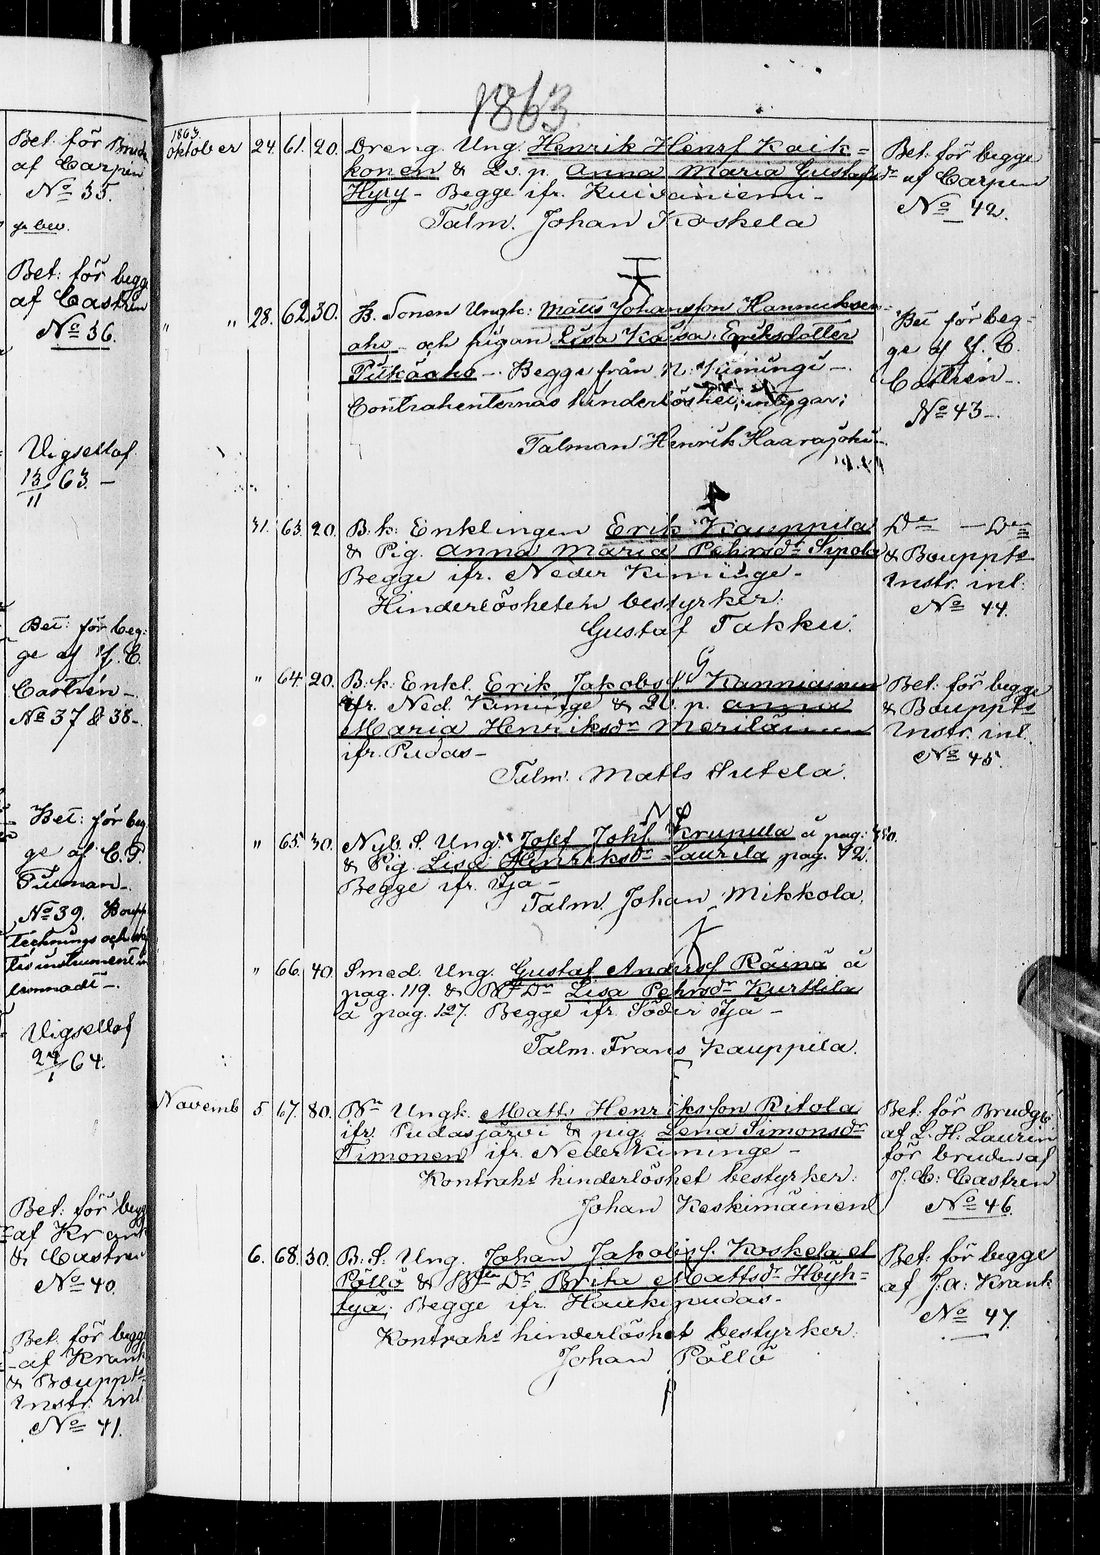 Bet. för Brude
af Carpen
No 35.
Bet: för begg
af Castrén
No 36.
Vigsellaf
13/11 63. –
Bet: för beg:
ge af J. C.
Castrén –
No 37 & 38 –
Bet: för beg
ge af C. P.
No 39. Boupp
tecknings och
tes instrument in
lemnadt –
Vigsellaf
24/1 64.
Bet: för begg
af Krank
& Castren
No 40.
Bet: för begg
af Krank
& Bouppts
Instr. inl.
No 41.
1863.
1863.
Oktober 24. 61. 20. Dreng. Ung. Henrik Henrs Kaik=
konen & Qv. p. Anna Maria Gustafsdr
Hyry – Begge ifr. Kuivaniemi –
Talm. Johan Koskela
Bet. för begge
af Carpen
No 42.
" " 28. 62. 30. B. Sonen Ungk: Matts Johansson Hannuksen
aho – och pigan Lisa Kaisa Eriksdotter
Pitkäaho – Begge från N: Kiminge –
Contrahenternas hinderlöshet intygar:
Talman Henrik Haarajoki –
Bet för beg=
ge af J. C.
Castrén –
No 43 –
31. 63. 20. B. k. Enklingen Erik Kauppila
& Pig. Anna Maria Pehrsdr Sipola
Begge ifr. Neder Kiminge –
Hinderlösheten bestyrker:
Gustaf Takku.
De — Do
& Bouppts
Instr. inl.
No 44.
" 64. 20. B. k. Enkl. Erik Jakobss. Kanniainen
ifr. Ned. Kiminge & Qv. p. Anna
Maria Henriksdr Meriläinen
ifr. Pudas –
Talm. Matts Sutela.
Bet. för begge
& Bouppts
Instr. inl.
No 45.
" 65. 30. Nyb. S. Ung. Josef Johs. Krupula å pag: 450.
& Pig. Lisa Henriksdr Laurila pag. 42.
Begge ifr. Ijo –
Talm. Johan Mikkola.
" 66. 40. Smed. Ung. Gustaf Anderss Räinä å
pag. 119. & Bf Dr Lisa Pehrsdr Kurttila
å pag. 127. Begge ifr. Söder Ijo –
Talm. Frans Kauppila.
Novemb 5 67. 80. Bn Ungk. Matts Henriksson Ritola
ifr. Pudasjärvi & pig. Lena Simonsdr
Timonen ifr. Neder Kiminge –
Kontrahs hinderlöshet bestyrker:
Johan Keskimäinen
Bet: för Brudg.
af L. H. Laurin
för bruden af
J. C: Castren
No 46.
6. 68. 30. B. S. Ung. Johan Jakobs s. Koskela el
Pöllö & Bf Dr Brita Mattsdr Höyh=
tyä. Begge ifr. Haukipudas –
Kontrahs hinderlöshet bestyrker.
Johan Pöllö
Bet: för begge
af J. A: Krank
No 47.